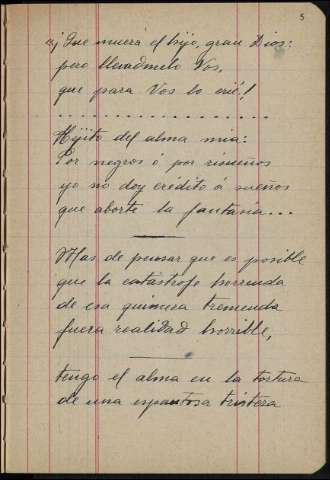 5
¡Que muera el hijo, gran Dios:
pero llevádmelo Vos,
que para Vos lo crié!
. . . . . . . . . . . . . . . . . .
Hijito del alma mía:
Por negros ó por risueños
yo no doy crédito á sueños
que aborte la fantasía...
Mas de pensar que es posible
que la catástrofe horrenda
de esa quimera tremenda
fuera realidad horrible,
tengo el alma en la tortura
de una espantosa tristeza